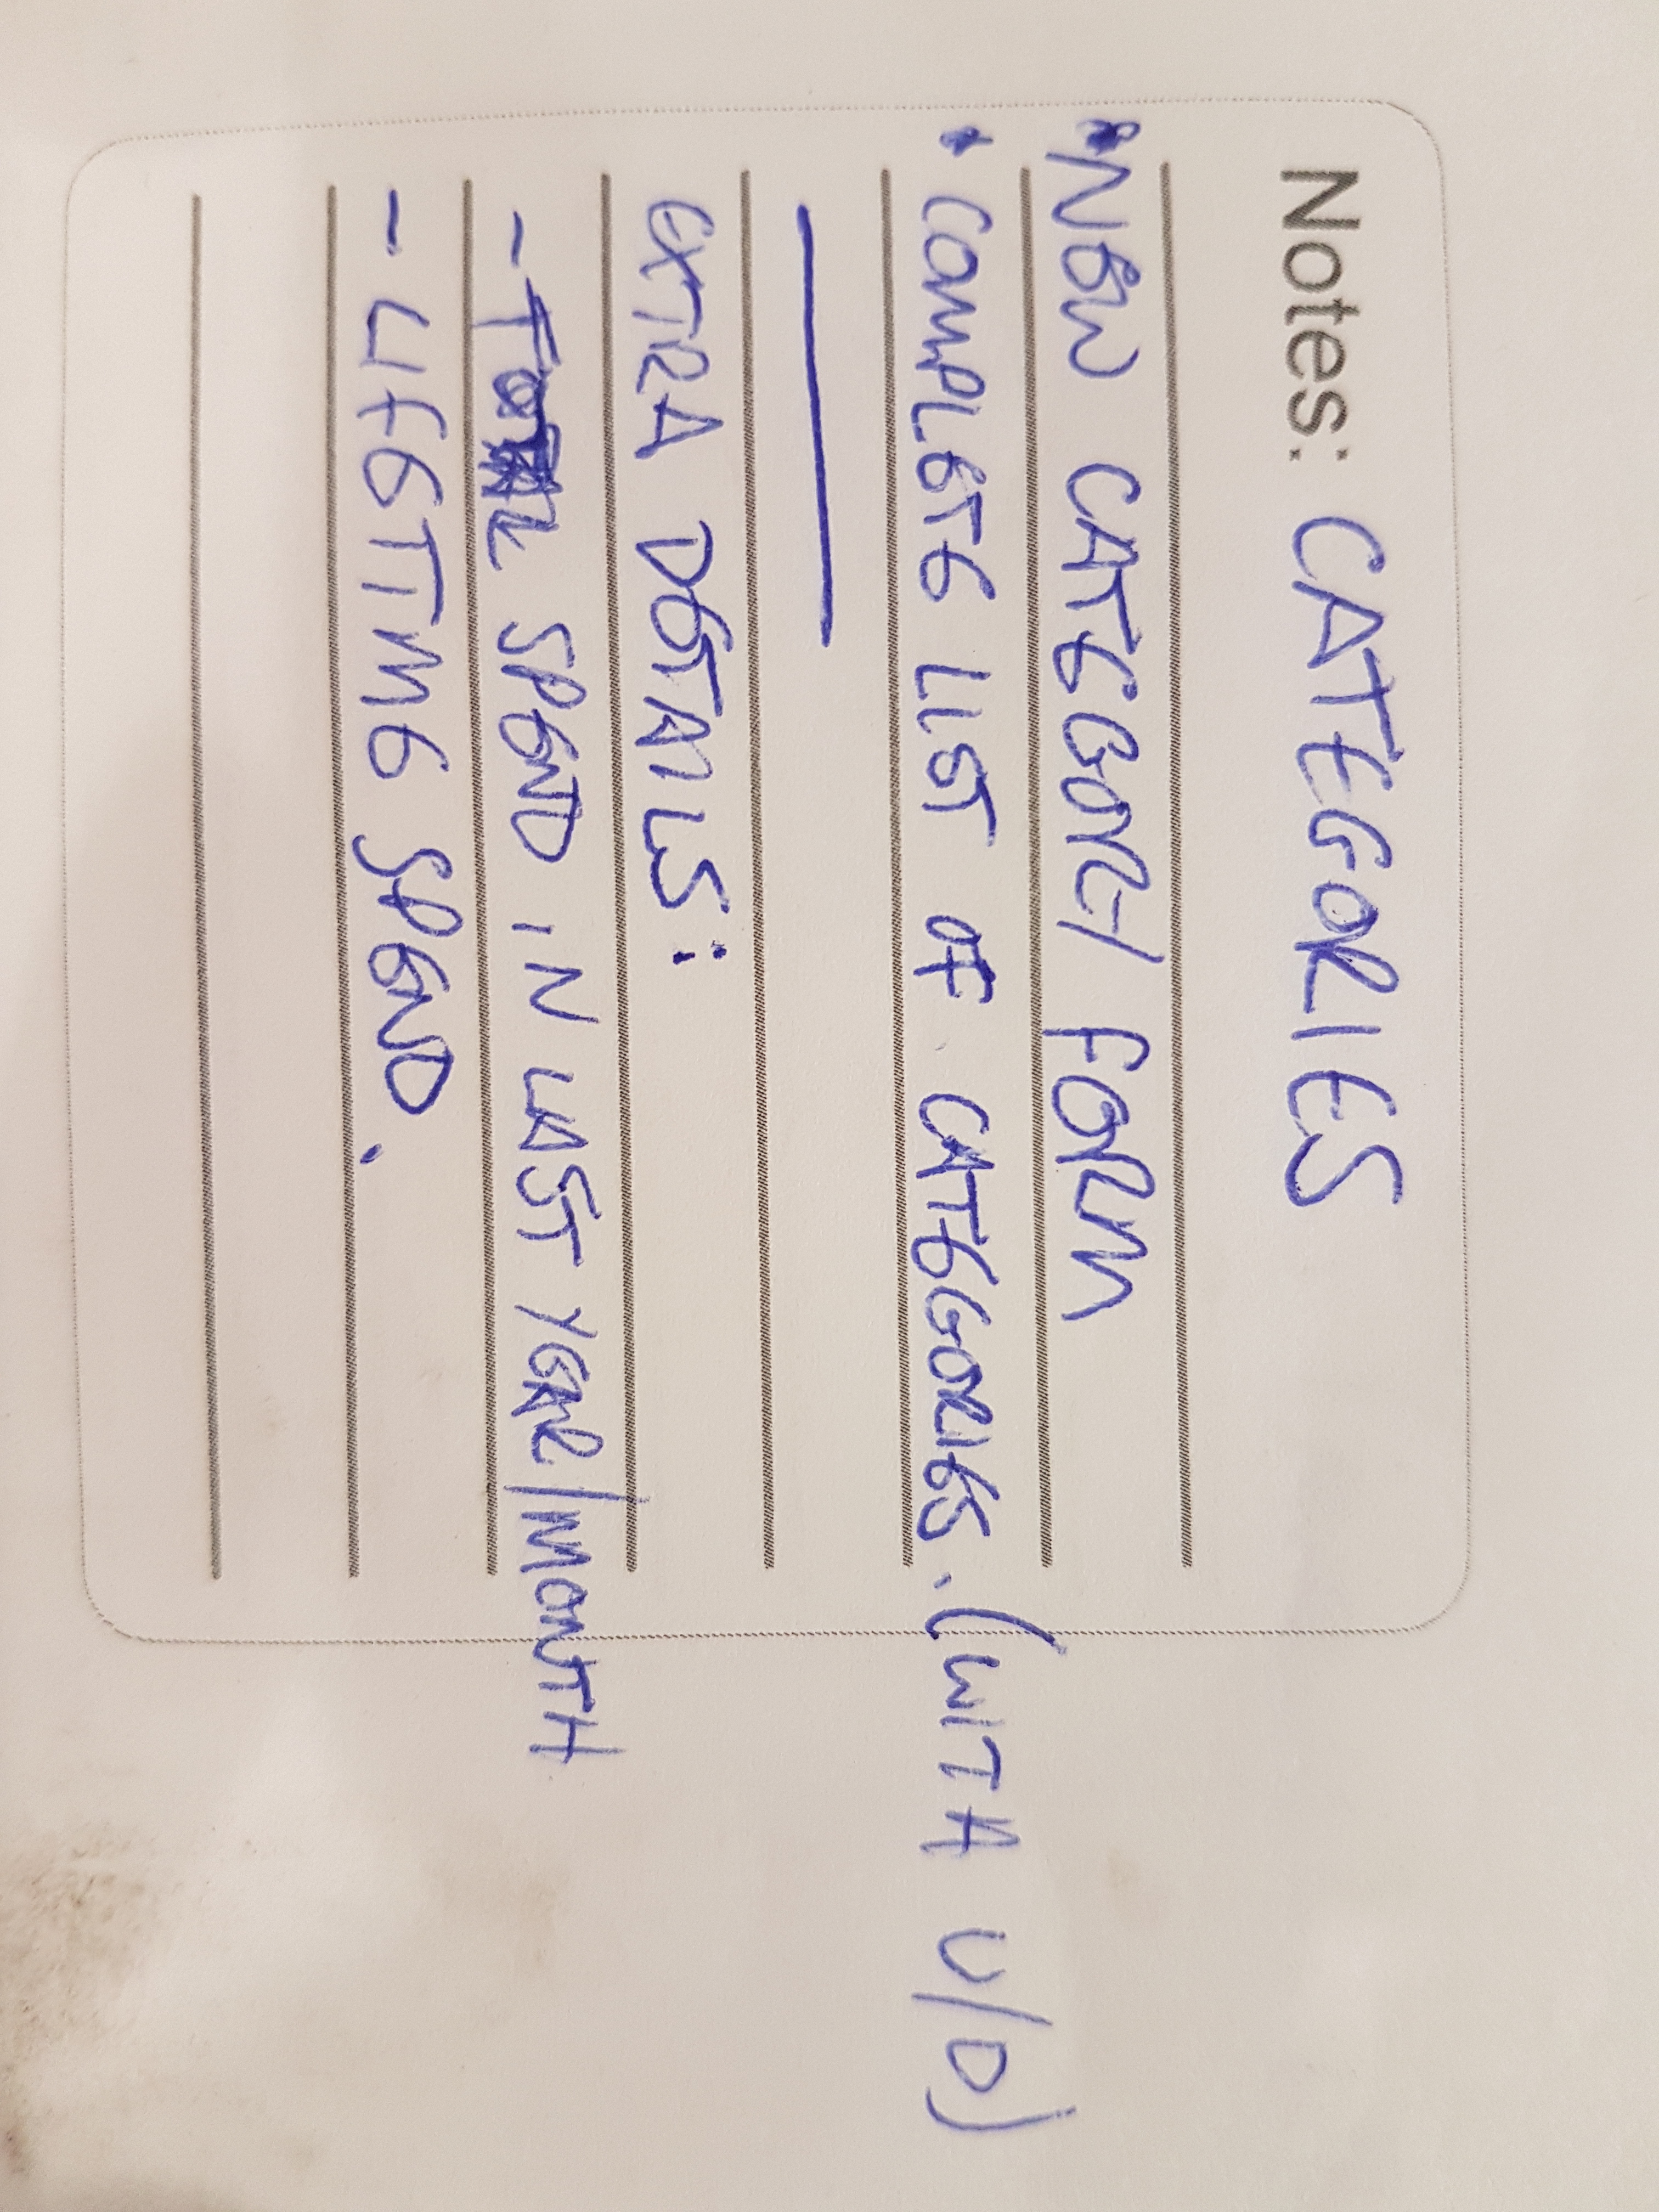 Notes: CATEGORIES
• NEW CATEGORY FORM
• COMPLETE LIST OF CATEGORIES. (WITH U/D)
EXTRA DETAILS:
- TOTAL SPEND IN LAST YEAR/MONTH
- LIFETIME SPEND.